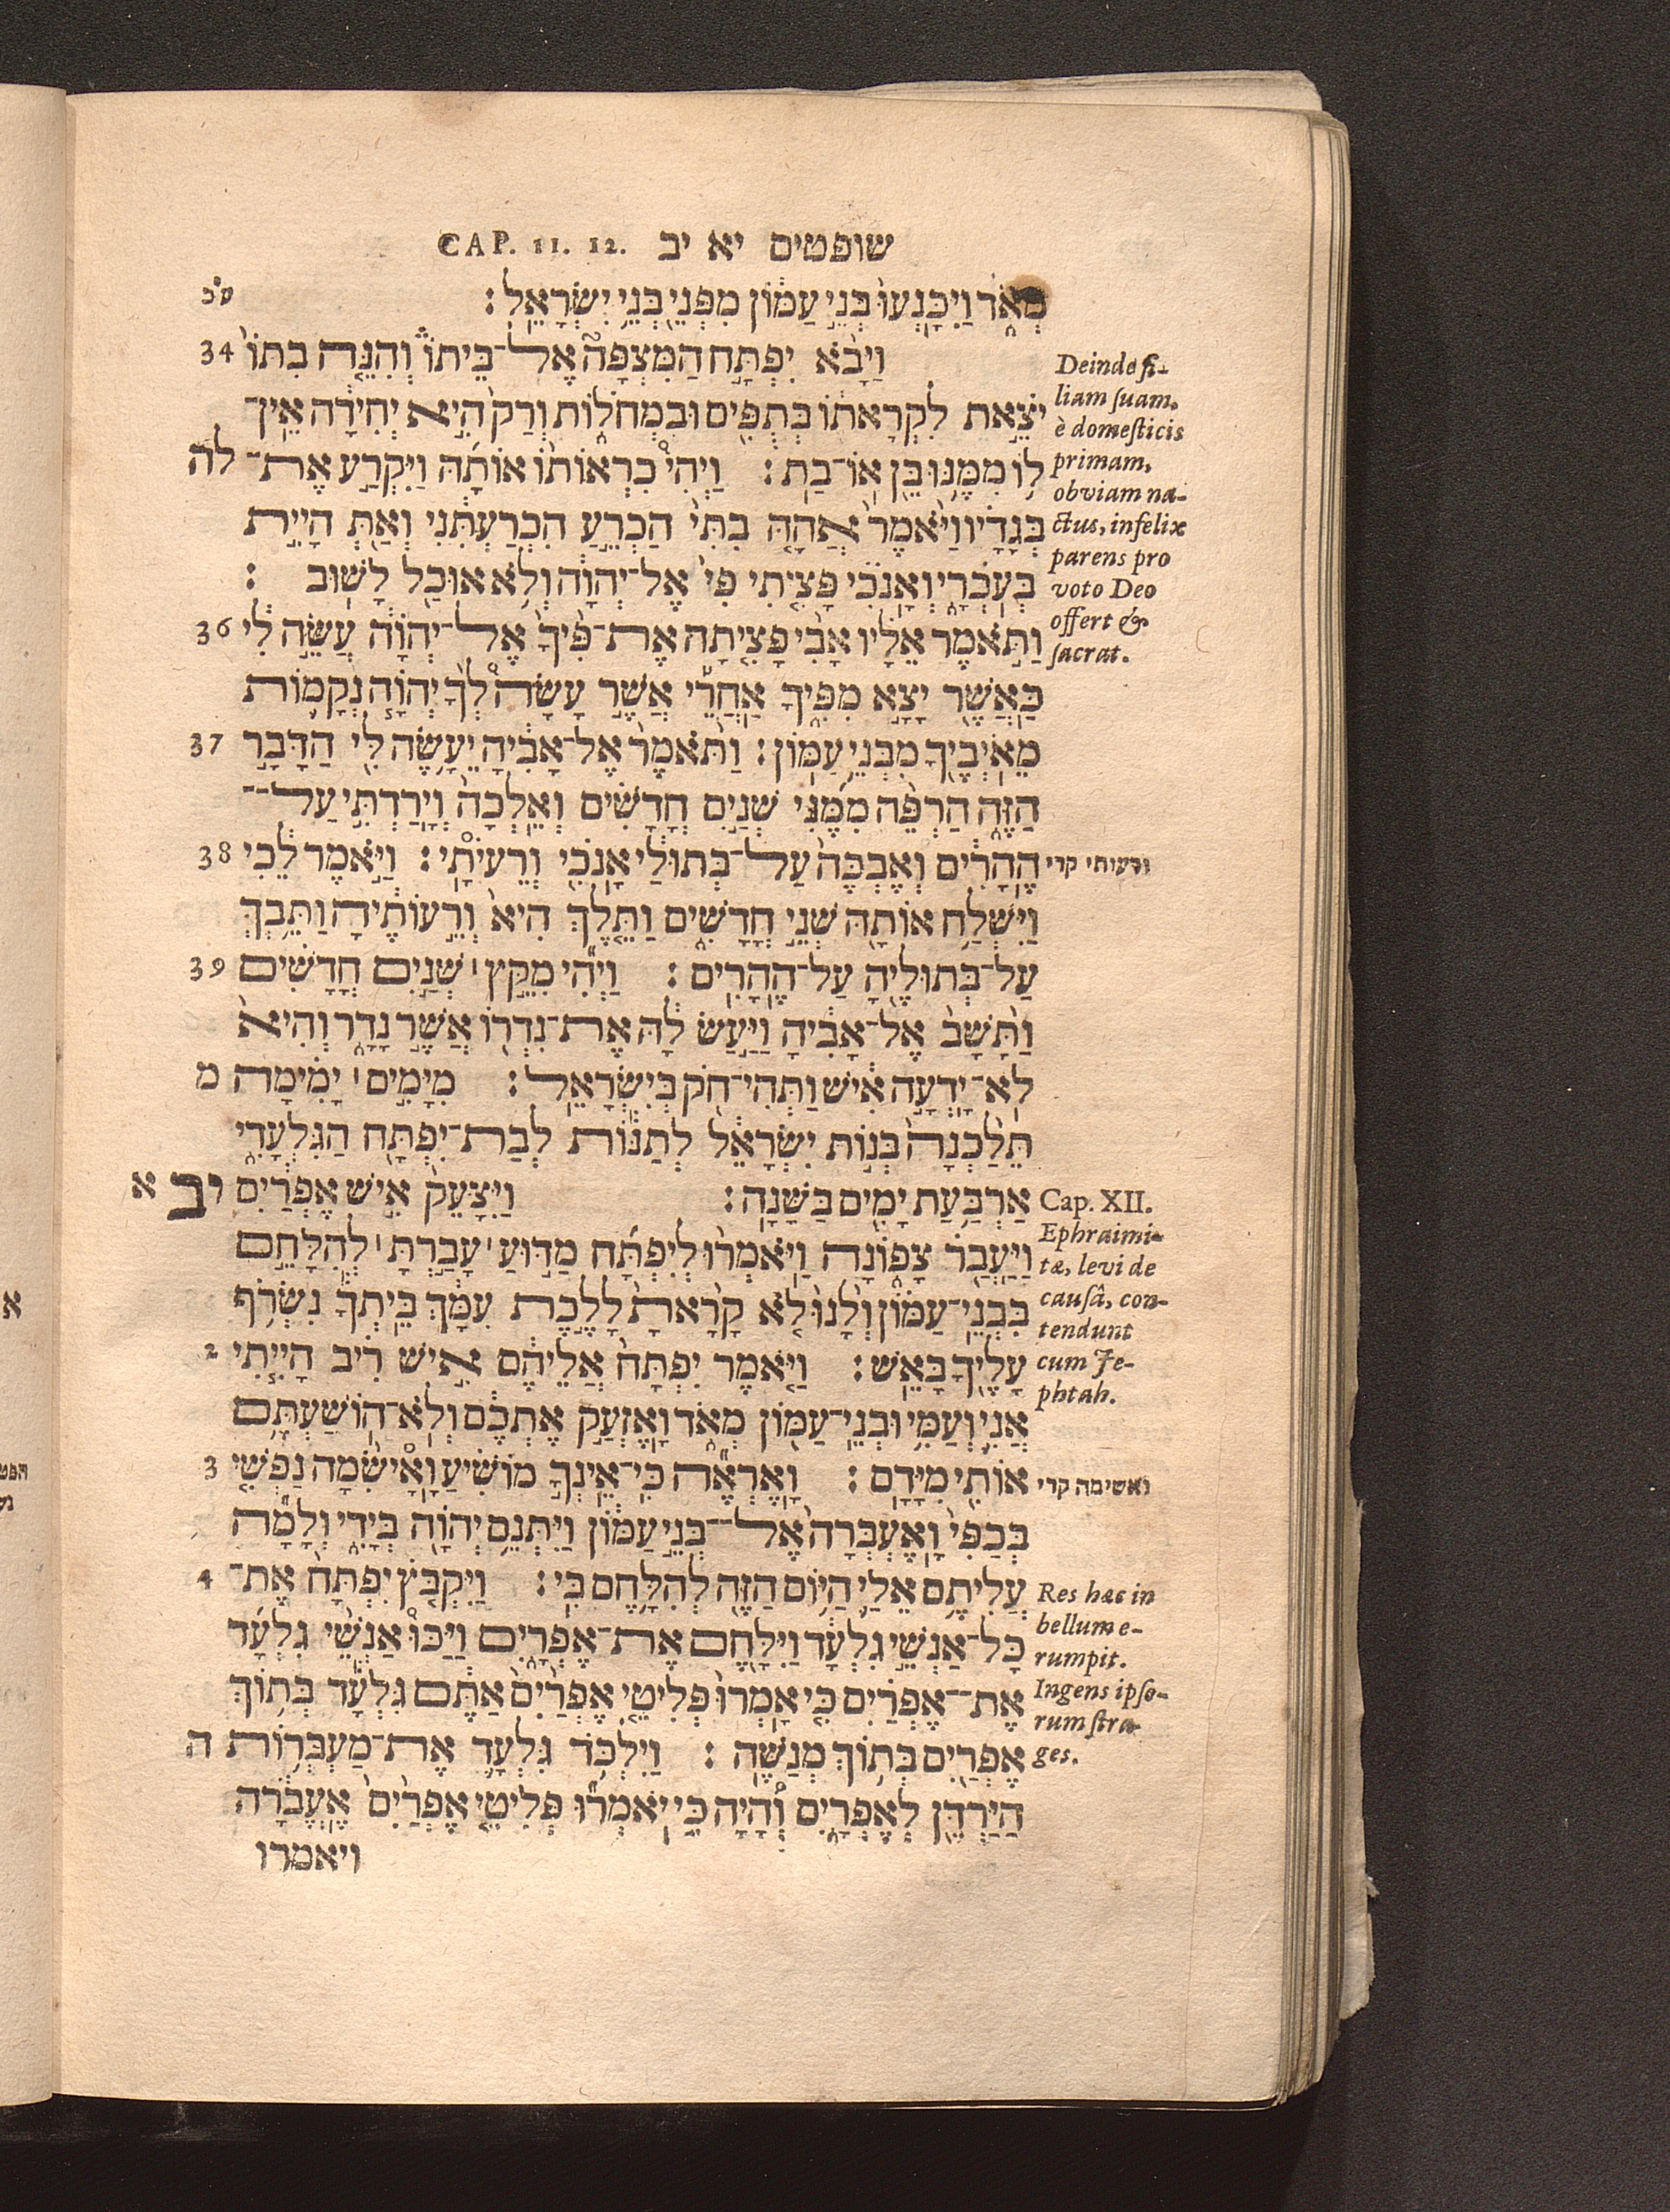 CAP. 11. 12. שופטים יא יב
מְאֹ֑ד וַיִּכָּֽנְעוּ֙ בְּנֵ֣י עַמּ֔וֹן מִפְּנֵ֖י בְּנֵ֥י יִשְׂרָאֵֽל׃
34 וַיָּבֹ֨א יִפְתָּ֣ח הַמִּצְפָּה֮ אֶל־בֵּיתוֹ֒ וְהִנֵּ֤ה בִתּוֹ֙
יֹצֵ֣את לִקְרָאת֔וֹ בְּתֻפִּ֖ים וּבִמְחֹל֑וֹת וְרַק֙ הִ֣יא יְחִידָ֔ה אֵֽין־
ל֥וֹ מִמֶּ֛נּוּ בֵּ֖ן אוֹ־בַֽת׃ וַיְהִי֩ כִרְאוֹת֨וֹ אוֹתָ֜הּ וַיִּקְרַ֣ע אֶת־ לה
בְּגָדָ֗יו וַיֹּ֙אמֶר֙ אֲהָ֤הּ בִּתִּי֙ הַכְרֵ֣עַ הִכְרַעְתִּ֔נִי וְאַ֖תְּ הָיִ֣ית
בְּעֹֽכְרָ֑י וְאָנֹכִ֗י פָּצִ֤יתִי פִי֙ אֶל־יְהוָ֔ה וְלֹ֥א אוּכַ֖ל לָשֽׁוּב׃
36 וַתֹּ֣אמֶר אֵלָ֗יו אָבִי֙ פָּצִ֤יתָה אֶת־פִּ֙יךָ֙ אֶל־יְהוָ֔ה עֲשֵׂ֣ה לִ֔י
כַּאֲשֶׁ֖ר יָצָ֣א מִפִּ֑יךָ אַחֲרֵ֡י אֲשֶׁ֣ר עָשָׂה֩ לְךָ֨ יְהוָ֧ה נְקָמ֛וֹת
37 מֵאֹיְבֶ֖יךָ מִבְּנֵ֥י עַמּֽוֹן׃ וַתֹּ֙אמֶר֙ אֶל־אָבִ֔יהָ יֵעָ֥שֶׂה לִּ֖י הַדָּבָ֣ר
הַזֶּ֑ה הַרְפֵּ֨ה מִמֶּ֜נִּי שְׁנַ֣יִם חֳדָשִׁ֗ים וְאֵֽלְכָה֙ וְיָרַדְתִּ֣י עַל־
38 הֶֽהָרִ֔ים וְאֶבְכֶּה֙ עַל־בְּתוּלַ֔י אָנֹכִ֖י וְרֵעיֹתָֽי׃ וַיֹּ֣אמֶר לֵ֔כִי
וַיִּשְׁלַ֥ח אוֹתָ֖הּ שְׁנֵ֣י חֳדָשִׁ֑ים וַתֵּ֤לֶךְ הִיא֙ וְרֵ֣עוֹתֶ֔יהָ וַתֵּ֥בְךְּ
39 עַל־בְּתוּלֶ֖יהָ עַל־הֶהָרִֽים׃ וַיְהִ֞י מִקֵּ֣ץ ׀ שְׁנַ֣יִם חֳדָשִׁ֗ים
וַתָּ֙שָׁב֙ אֶל־אָבִ֔יהָ וַיַּ֣עַשׂ לָ֔הּ אֶת־נִדְר֖וֹ אֲשֶׁ֣ר נָדָ֑ר וְהִיא֙
לֹא־יָדְעָ֣ה אִ֔ישׁ וַתְּהִי־חֹ֖ק בְּיִשְׂרָאֵֽל׃ מִיָּמִ֣ים ׀ יָמִ֗ימָה מ
תֵּלַ֙כְנָה֙ בְּנ֣וֹת יִשְׂרָאֵ֔ל לְתַנּ֕וֹת לְבַת־יִפְתָּ֖ח הַגִּלְעָדִ֑י
אַרְבַּ֥עַת יָמִ֖ים בַּשָּׁנָֽה׃ וַיִּצָּעֵק֙ אִ֣ישׁ אֶפְרַ֔יִם יב א
וַֽיַּעֲבֹ֖ר צָפ֑וֹנָה וַיֹּאמְר֨וּ לְיִפְתָּ֜ח מַדּ֣וּעַ ׀ עָבַ֣רְתָּ ׀ לְהִלָּחֵ֣ם
בִּבְנֵי־עַמּ֗וֹן וְלָ֙נוּ֙ לֹ֤א קָרָ֙אתָ֙ לָלֶ֣כֶת עִמָּ֔ךְ בֵּיתְךָ֕ נִשְׂרֹ֥ף
2 עָלֶ֖יךָ בָּאֵֽשׁ׃ וַיֹּ֤אמֶר יִפְתָּח֙ אֲלֵיהֶ֔ם אִ֣ישׁ רִ֗יב הָיִ֛יתִי
אֲנִ֛י וְעַמִּ֥י וּבְנֵֽי־עַמּ֖וֹן מְאֹ֑ד וָאֶזְעַ֣ק אֶתְכֶ֔ם וְלֹֽא־הוֹשַׁעְתֶּ֥ם
3 אוֹתִ֖י מִיָּדָֽם׃ וָֽאֶרְאֶ֞ה כִּֽי־אֵינְךָ֣ מוֹשִׁ֗יעַ וָאָישִׂ֨מָה נַפְשִׁ֤י
בְכַפִּי֙ וָֽאֶעְבְּרָה֙ אֶל־בְּנֵ֣י עַמּ֔וֹן וַיִּתְּנֵ֥ם יְהוָ֖ה בְּיָדִ֑י וְלָמָ֞ה
4 עֲלִיתֶ֥ם אֵלַ֛י הַיּ֥וֹם הַזֶּ֖ה לְהִלָּ֥חֶם בִּֽי׃ וַיִּקְבֹּ֤ץ יִפְתָּח֙ אֶת־
כָּל־אַנְשֵׁ֣י גִלְעָ֔ד וַיִּלָּ֖חֶם אֶת־אֶפְרָ֑יִם וַיַּכּוּ֩ אַנְשֵׁ֨י גִלְעָ֜ד
אֶת־אֶפְרַ֗יִם כִּ֤י אָמְרוּ֙ פְּלִיטֵ֤י אֶפְרַ֙יִם֙ אַתֶּ֔ם גִּלְעָ֕ד בְּת֥וֹךְ
אֶפְרַ֖יִם בְּת֥וֹךְ מְנַשֶּֽׁה׃ וַיִּלְכֹּ֥ד גִּלְעָ֛ד אֶֽת־מַעְבְּר֥וֹת ה
הַיַּרְדֵּ֖ן לְאֶפְרָ֑יִם וְֽ֠הָיָה כִּ֣י יֹאמְר֞וּ פְּלִיטֵ֤י אֶפְרַ֙יִם֙ אֶעֱבֹ֔רָה
ויאמרו
Deinde fi-
liam suam,
è domesticis
primam,
obviam na-
ctus, infelix
parens pro
voto Deo
offert &
sacrat.
ורעותי קרי
Cap. XII.
Ephraimi-
tæ, levi de
causâ, con-
tendunt
cum Je-
phtah.
ואשימה קרי
Res hæc in
bellum e-
rumpit.
Ingens ipso-
rum stra-
ges.